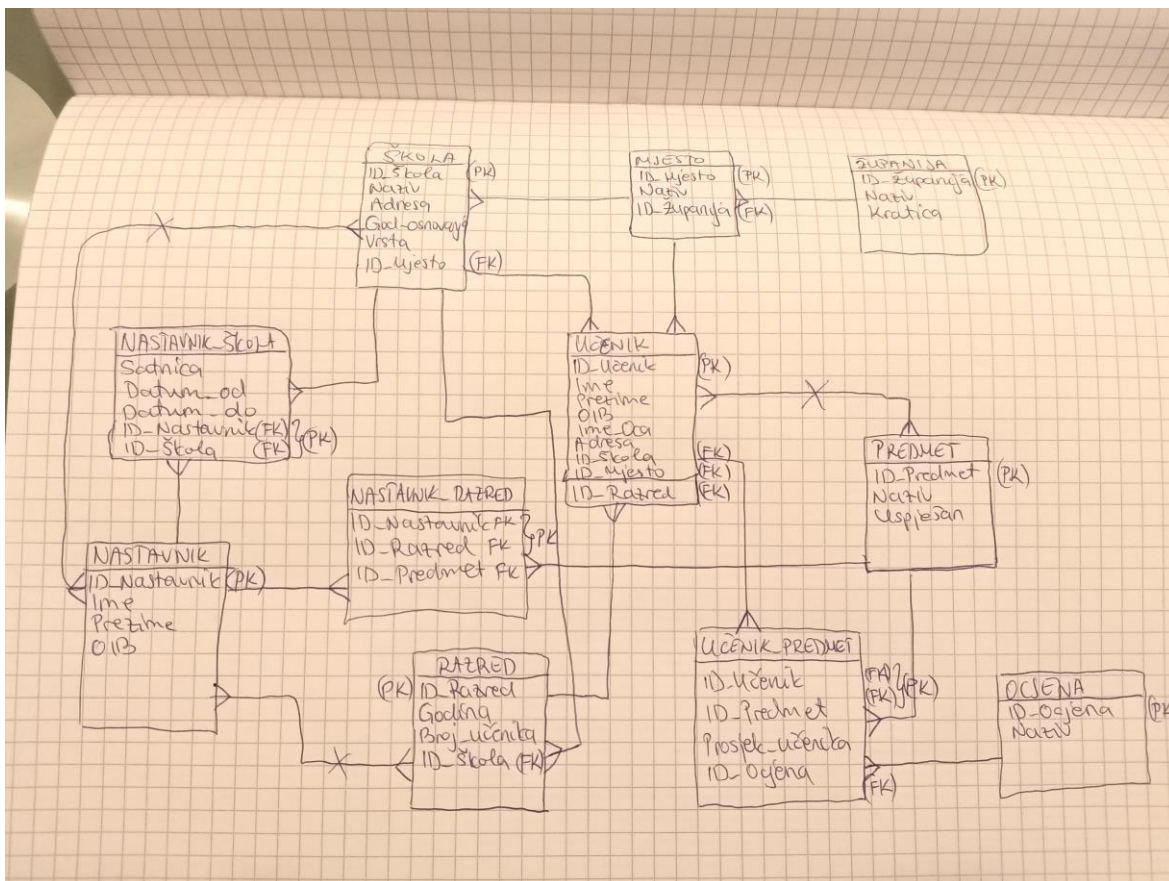 ŠKOLA
ID_Škola (PK)
Naziv
Adresa
God_osnovanja
Vrsta
ID_Mjesto (FK)
MJESTO
ID_Mjesto (PK)
Naziv
ID_Županija (FK)
ŽUPANIJA
ID_Županija (PK)
Naziv
Kratica
NASTAVNIK_ŠKOLA
Satnica
Datum_od
Datum_do
ID_Nastavnik (FK)
ID_Škola (FK) (PK)
UČENIK
ID_Učenik (PK)
Ime
Prezime
OIB
Ime_Oca
Adresa
ID_Škola (FK)
ID_Mjesto (FK)
ID_Razred (FK)
PREDMET
ID_Predmet (PK)
Naziv
Uspješan
NASTAVNIK_RAZRED
ID_Nastavnik FK
ID_Razred FK PK
ID_Predmet FK
NASTAVNIK
ID_Nastavnik (PK)
Ime
Prezime
OIB
RAZRED
(PK) ID_Razred
Godina
Broj_učenika
ID_Škola (FK)
UČENIK_PREDMET
ID_Učenik (FK)
ID_Predmet (FK) (PK)
Prosjek_učenika
ID_Ocjena (FK)
OCJENA
ID_Ocjena (PK
Naziv